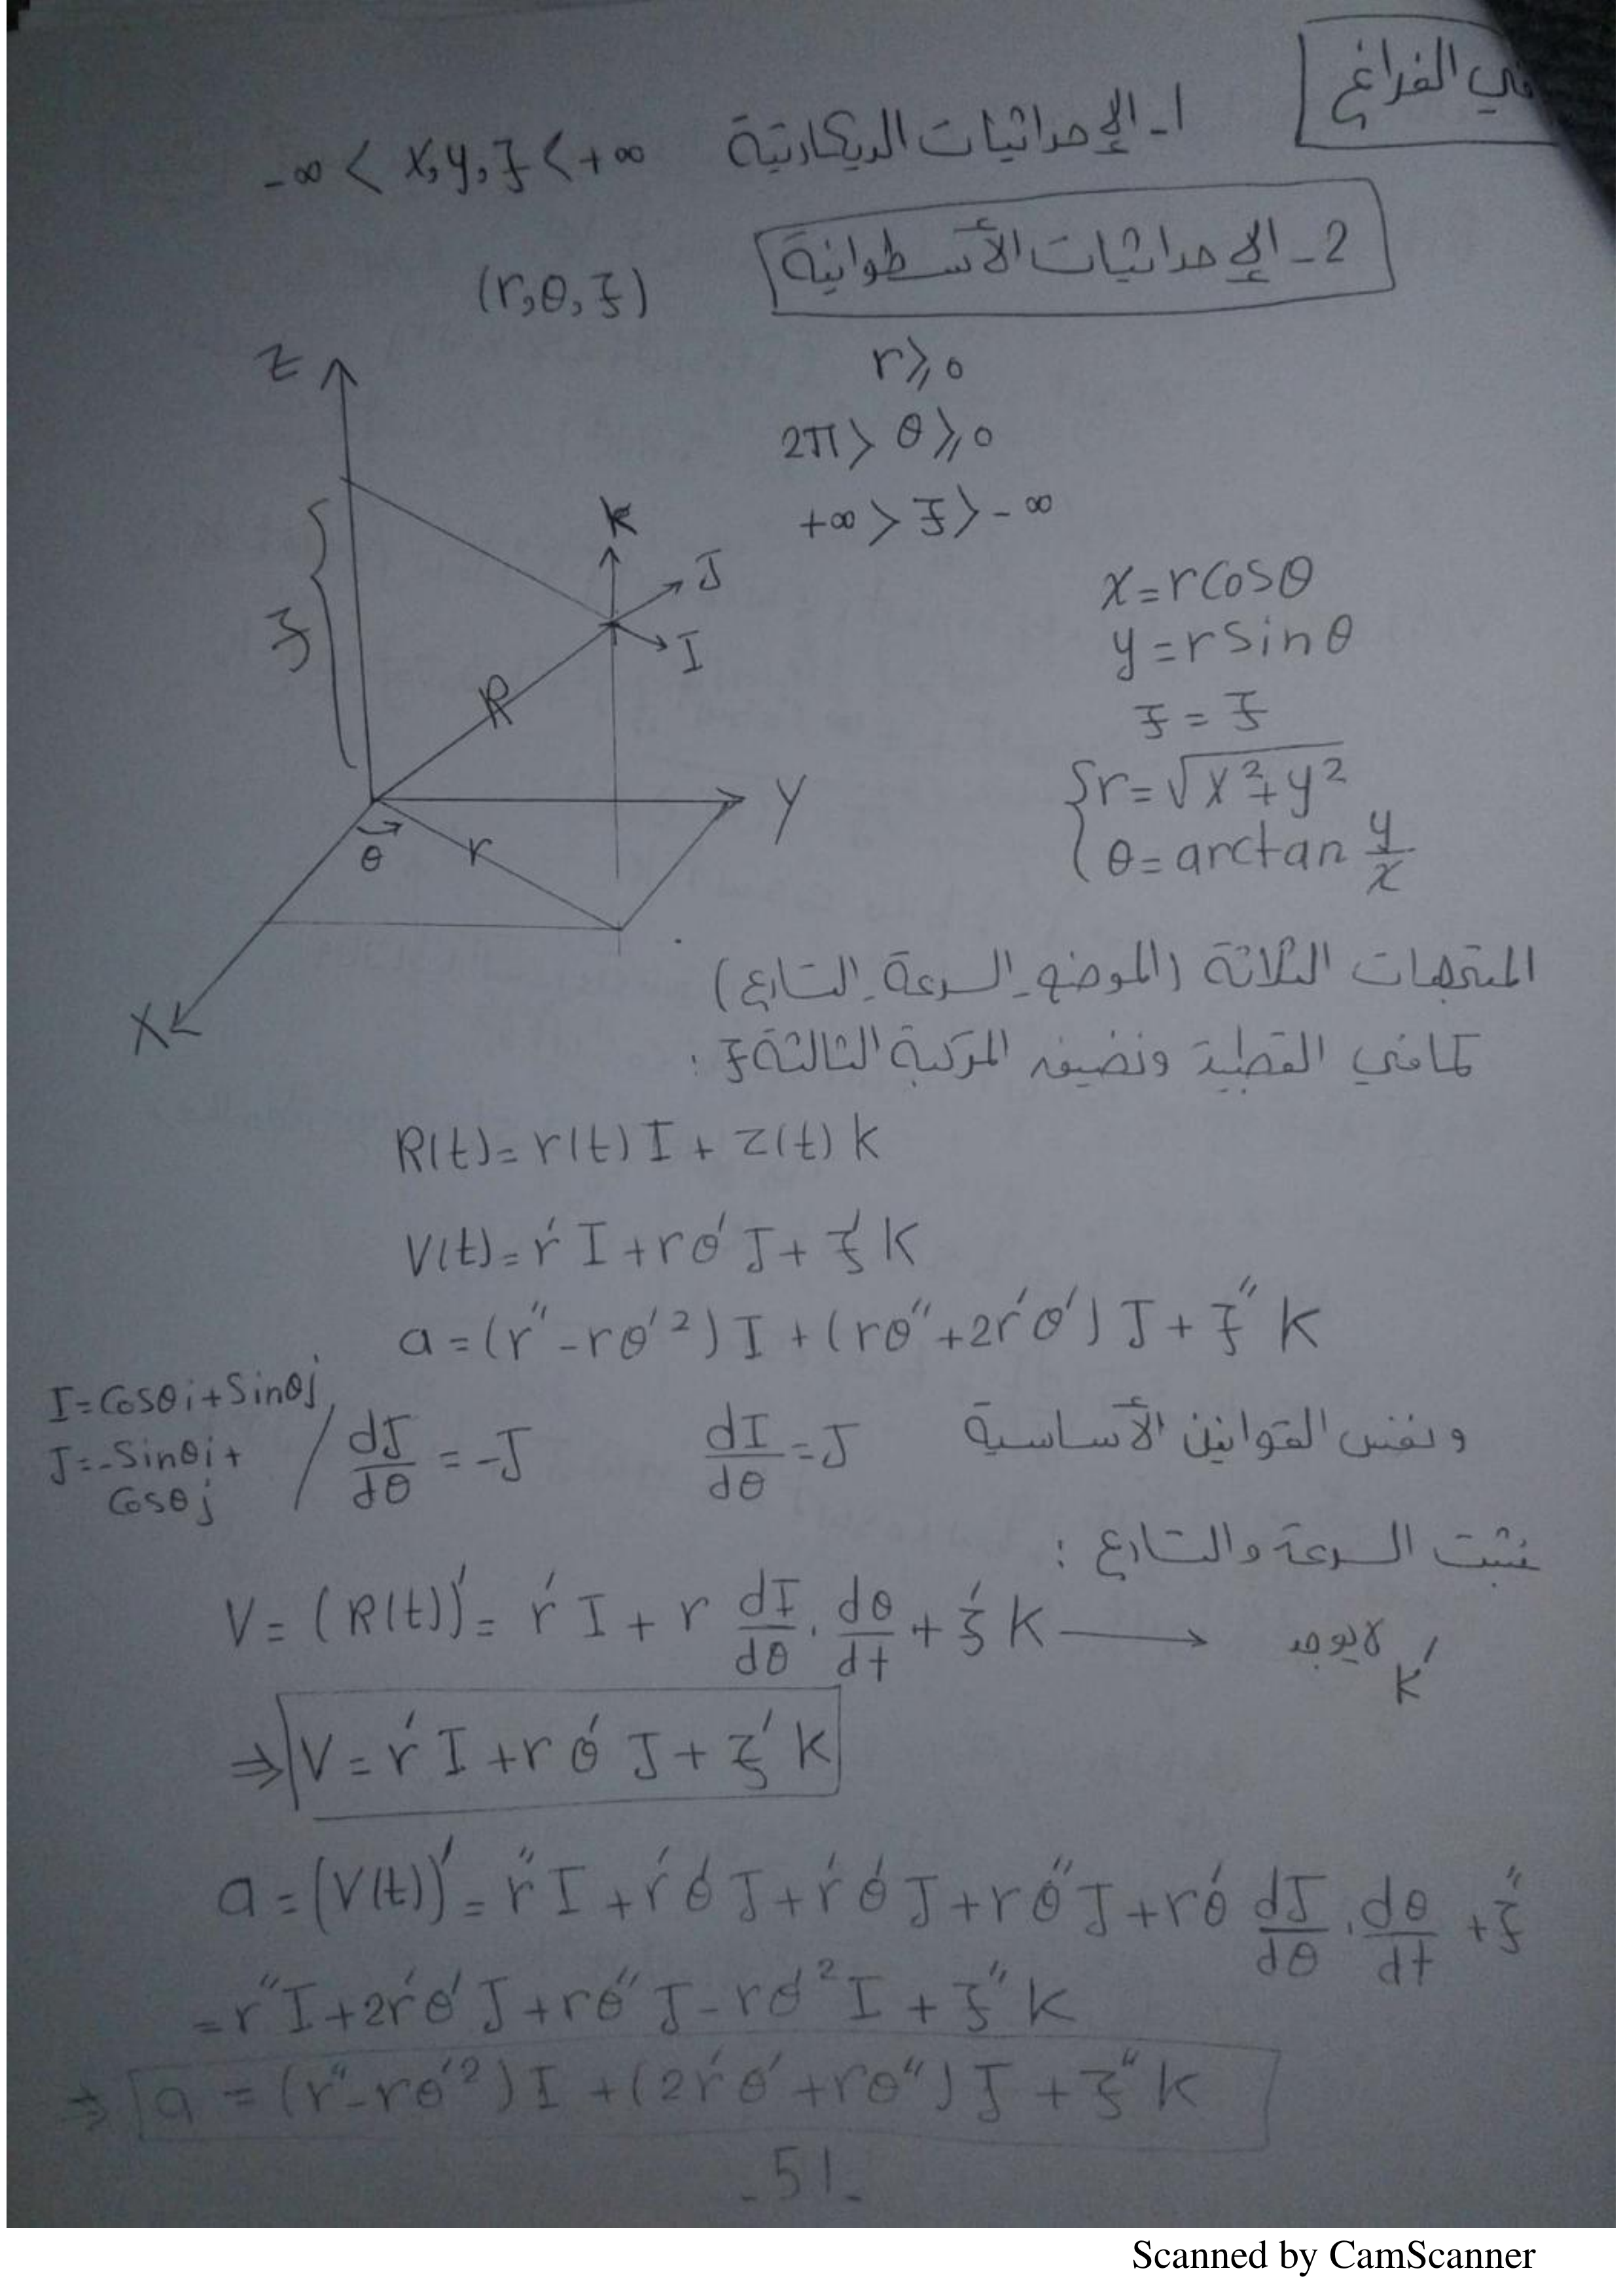 في الفراغ
1- الإحداثيات الديكارتية -∞ < x, y, z < +∞
2- الإحداثيات الأسطوانية (r, θ, z)
r ⩾ 0
2π > θ ⩾ 0
+∞ > z > -∞
Z
K
J
I
z
R
Y
θ
r
X
x = r cosθ
y = r sinθ
z = z
r = √x²+y²
θ = arctan y/x
المتجهات الثلاثة (الموضع - السرعة - التسارع)
كما في القطبية ونضيف المركبة الثالثة z :
R(t) = r(t) I + z(t) k
V(t) = r' I + rθ' J + z' K
a = (r'' - rθ'²) I + (rθ'' + 2r'θ') J + z'' K
ونفس القوانين الأساسية dI/dθ = J dJ/dθ = -J /
I = Cosθi + Sinθj,
J = -Sinθi +
Cosθj
نثبت السرعة والتسارع :
V = (R(t))' = r' I + r dI/dθ . dθ/dt + z' K ⟶ لا يوجد K'
⇒ V = r' I + rθ' J + z' K
a = (V(t))' = r'' I + r'θ' J + r'θ' J + rθ'' J + rθ' dJ/dθ . dθ/dt + z''
= r'' I + 2r'θ' J + rθ'' J - rθ'² I + z'' K
⇒ a = (r'' - rθ'²) I + (2r'θ' + rθ'') J + z'' K
-51-
Scanned by CamScanner